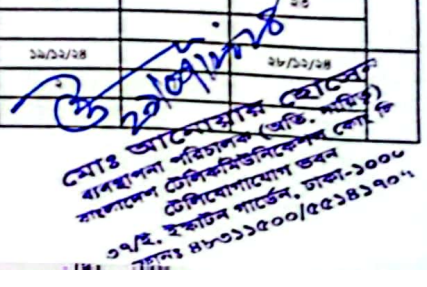 ২৪
১২/১২/২৪ ২৮/১২/২৪
মোঃ আনোয়ার হোসেন
ব্যবস্থাপনা পরিচালক (অতি. দায়িত্ব)
বাংলাদেশ টেলিকমিউনিকেশন্স কোঃ লি
টেলিযোগাযোগ ভবন
৩৭/ই, ইস্কাটন গার্ডেন, ঢাকা-১০০০
ফোনঃ ৪৮৩১১৫০০/৫৫১৪১৭০৭